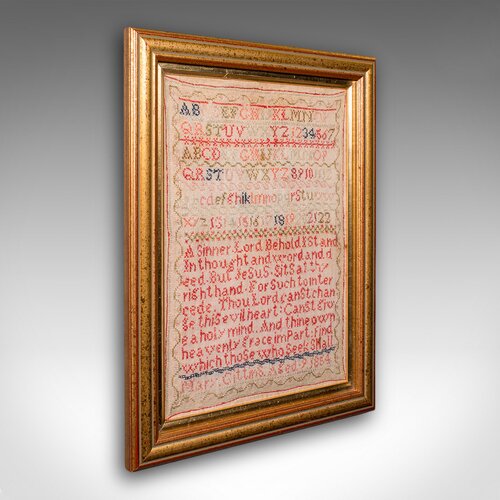 AB EFGHIJKLMN
QRSTUVWXYZ1234567
ABCD GHIJKLMNOP
QRSTUVWXYZ 8910
bcdefghiklmnopqrstu
XYZ 13141516 1819 2122
A Sinner Lord Behold I Stand
In thought and word and d
eed. But Jesus Sits at thy
right hand. For Such to inter
cede. Thou Lord canst chan
ge this evil heart: Canst give
a holy mind. And thine own
heavenly grace impart: find
which those who Seek Shall
Mary Aged 9 1884